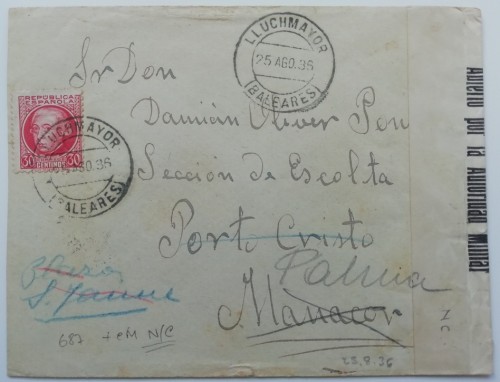 LLUCHMAYOR
25 AGO.36
(BALEARES)
REPUBLICA
ESPAÑOLA
30 CENTIMOS 30
LLUCHMAYOR
AGO.36
(BALEARES)
Sr Don
Damián Oliver Pou
Sección de Escolta
Porto Cristo
Palma
Manacor
S. Jaume
687 + eM N/C
25.8.36
Abierto por la Autoridad Militar
N C